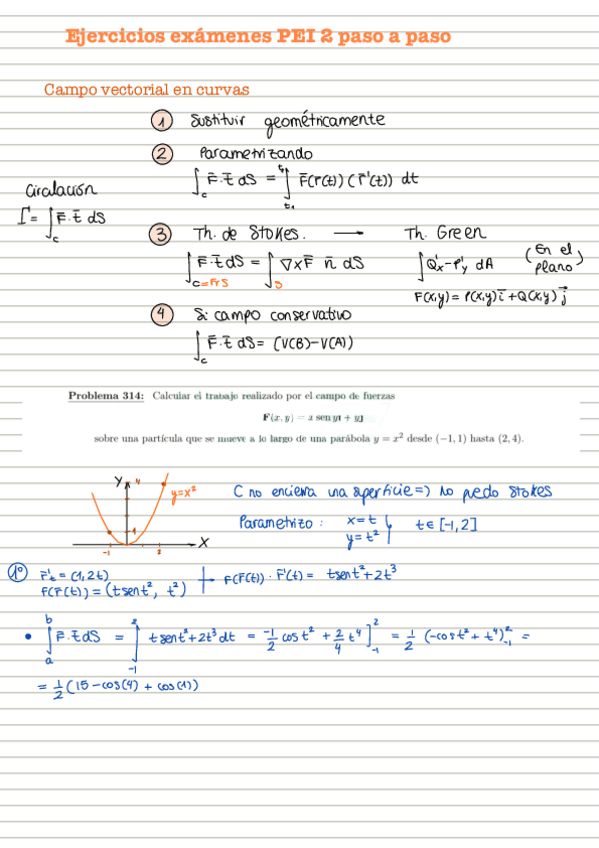 Ejercicios exámenes PEI 2 paso a paso
Campo vectorial en curvas
1 Sustituir geométricamente
2 Parametrizando
∫_c F̄·t̄ dS = ∫_{t1}^{t2} F̄(r̄(t)) (r̄'(t)) dt
Circulación
Γ = ∫_c F̄·t̄ dS
3 Th. de Stokes. → Th. Green
∫_{C=FrS} F̄·t̄ dS = ∫_S ∇xF̄ n̄ dS
∫ Q'x - P'y dA (En el plano)
F(x,y) = P(x,y) i⃗ + Q(x,y) j⃗
4 Si campo conservativo
∫_c F̄·t̄ dS = (V(B)-V(A))
Problema 314: Calcular el trabajo realizado por el campo de fuerzas
F(x, y) = x sen yi + yj
sobre una partícula que se mueve a lo largo de una parábola y = x² desde (−1, 1) hasta (2, 4).
Y 4 y=x²
1
-1 2 X
C no encierra una superficie => No puedo Stokes
Parametrizo : x=t
y=t²
t ∈ [-1,2]
1º r̄'t = (1,2t)
F(r̄(t)) = (t sen t², t²)
F(r̄(t)) · r̄'(t) = t sen t² + 2t³
• ∫_a^b F̄·t̄ dS = ∫_{-1}^{2} t sen t² + 2t³ dt = -1/2 cos t² + 2/4 t⁴ ]_{-1}^{2} = 1/2 (-cos t² + t⁴)_{-1}^{2} =
= 1/2 (15 - cos(4) + cos(1))